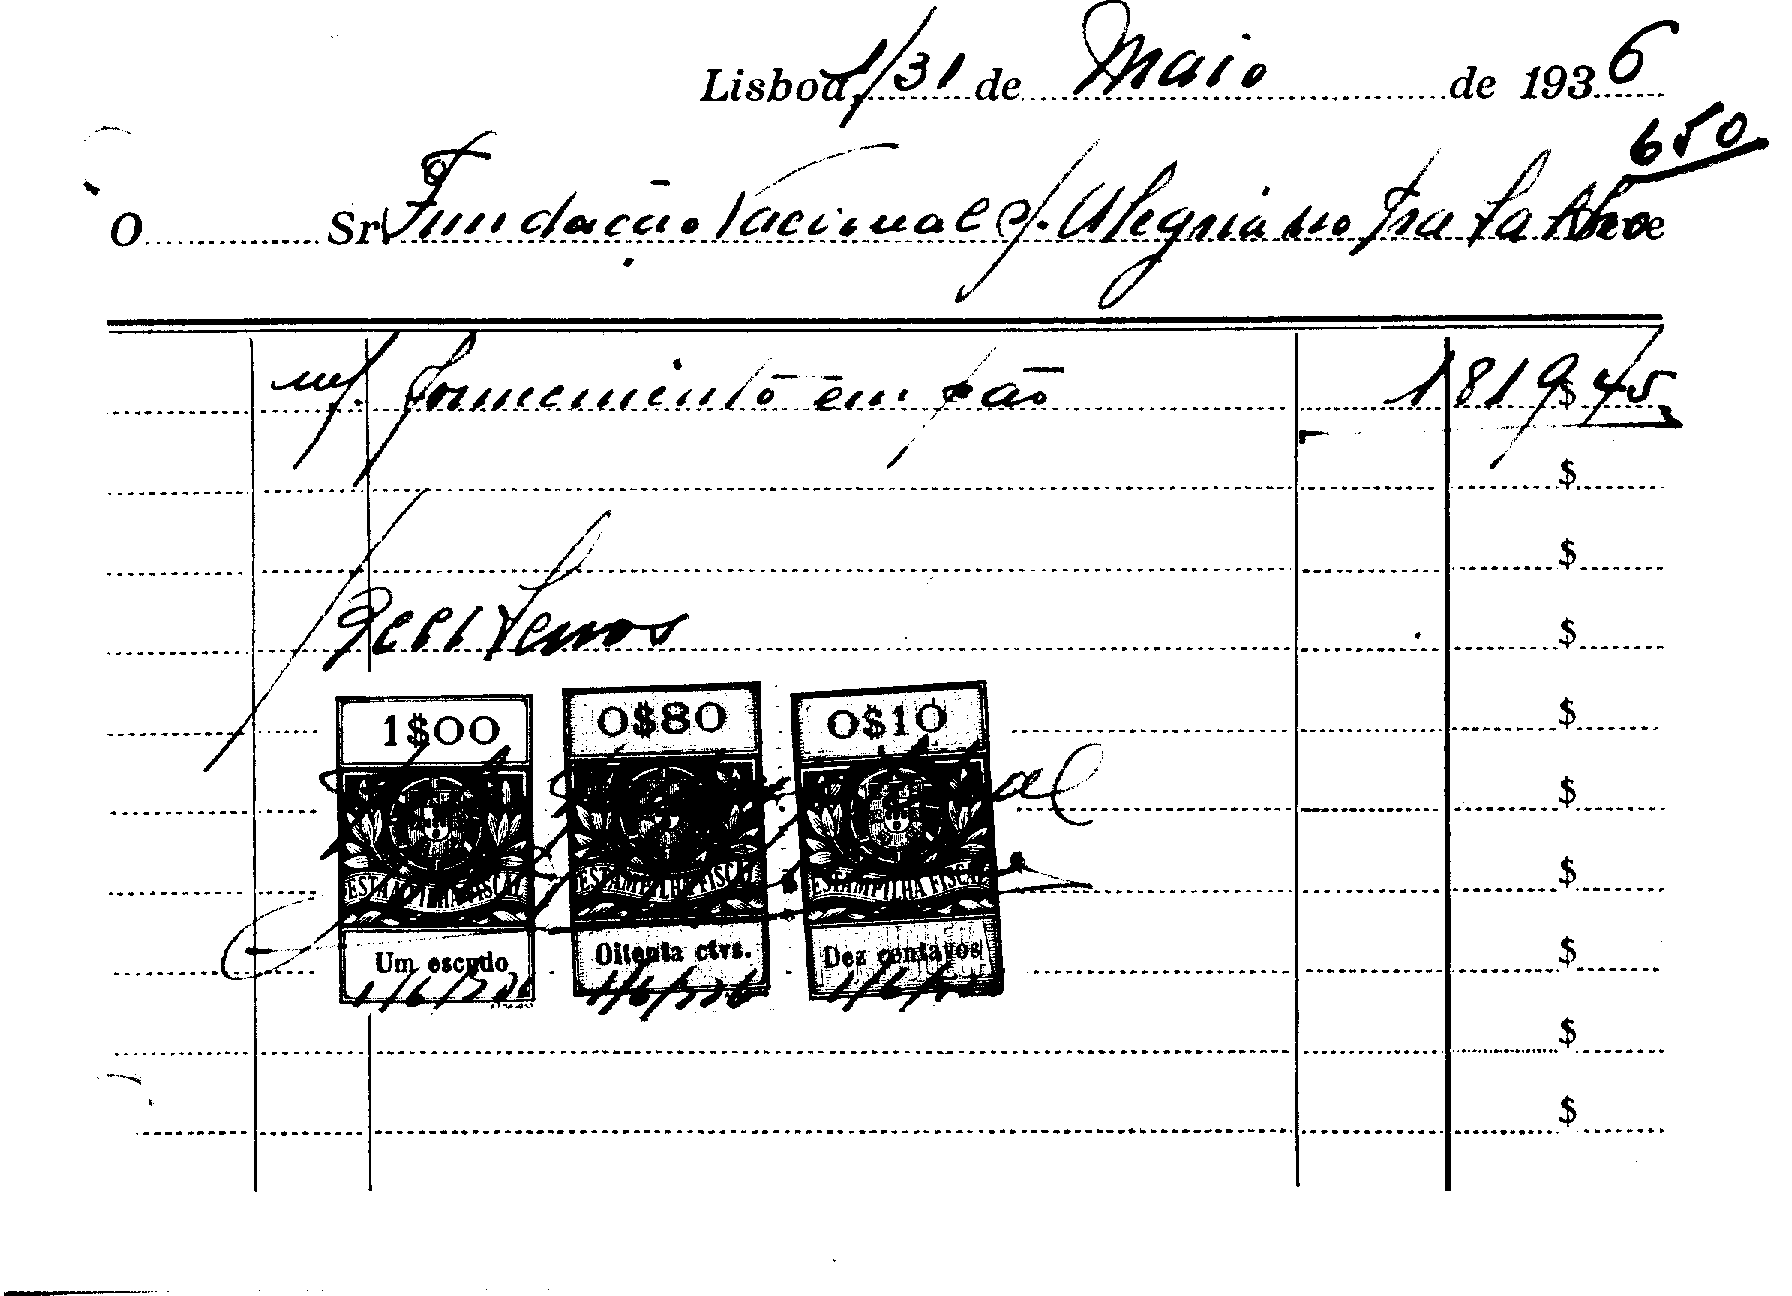 Lisboa, 1/31 de Maio de 1936
650
O Sr. Fundação Nacional p. Alegria no Trabalho
m/ fornecimento em pão 1819$45
$
$
Recebemos
$
1$00 0$80 0$10
$
$
ESTAMPILHA FISCAL ESTAMPILHA FISCAL ESTAMPILHA FISCAL
$
Um escudo Oitenta ctvs. Dez centavos
$
1/6/936 1/6/936 1/6/936
$
$